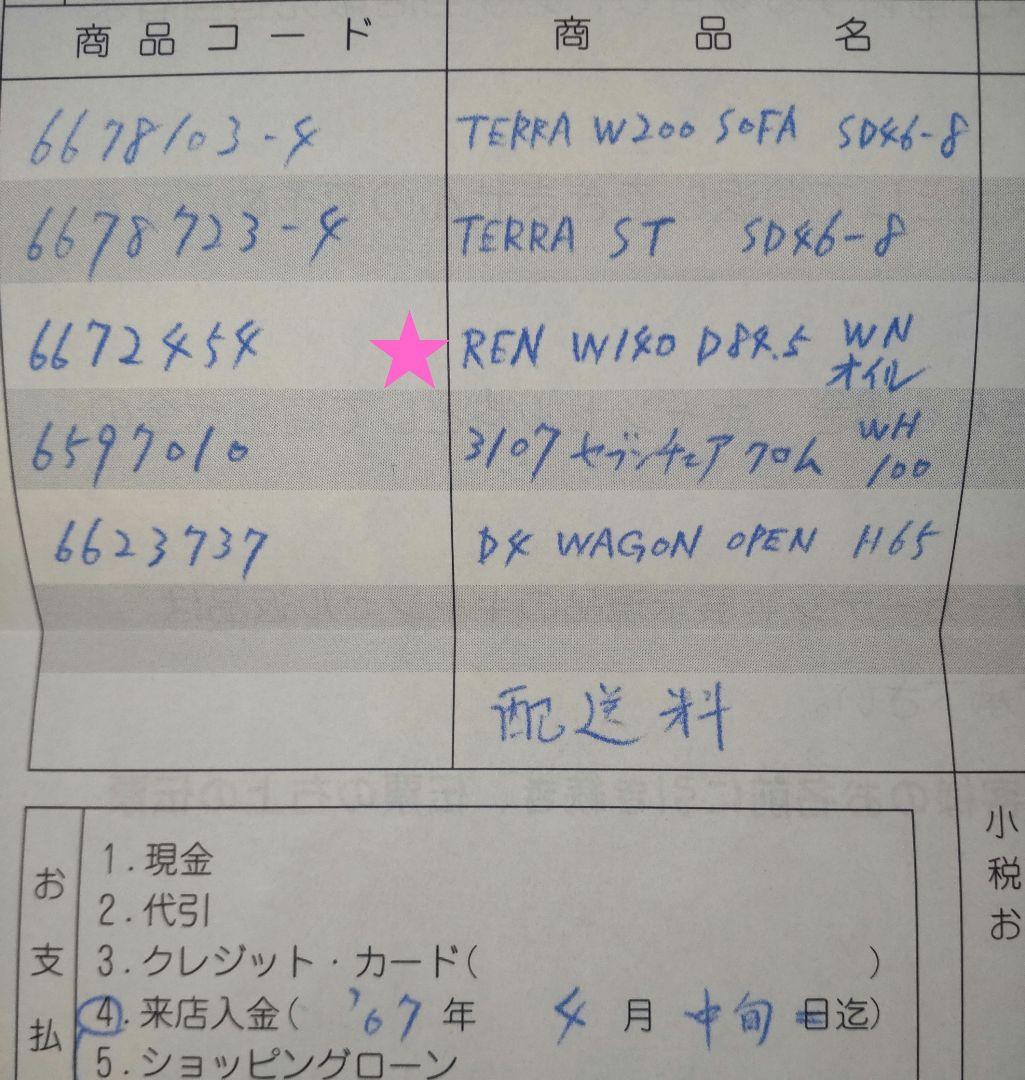 商品コード 商品名
6678103-4 TERRA W200 SOFA SD46-8
6678723-4 TERRA ST SD46-8
6672454 REN W140 D84.5 WN オイル
6597010 3107 セブンチェア クロム WH 100
6623737 D4 WAGON OPEN H65
配送料
お支払
1.現金
2.代引
3.クレジット・カード( )
4.来店入金( '07年 4月 中旬 日迄)
5.ショッピングローン
小
税
お